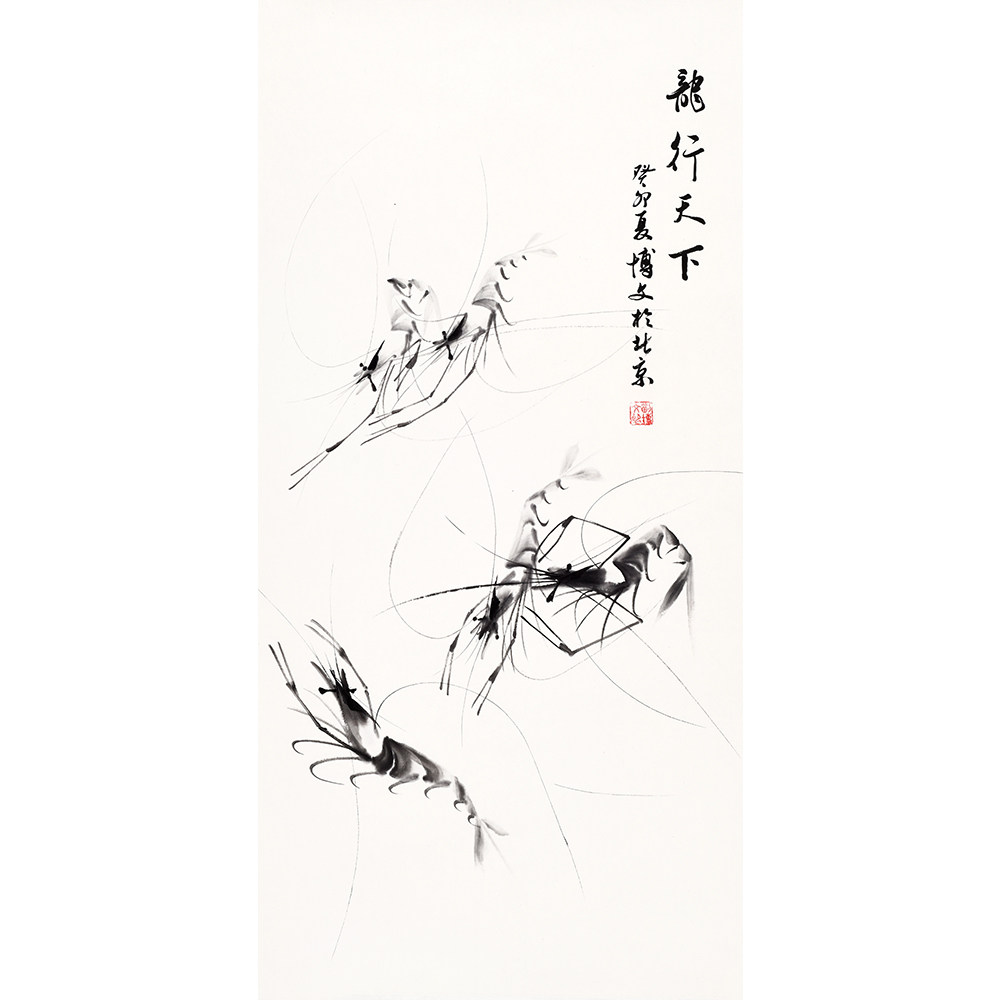 龍行天下
癸卯夏博文於北京